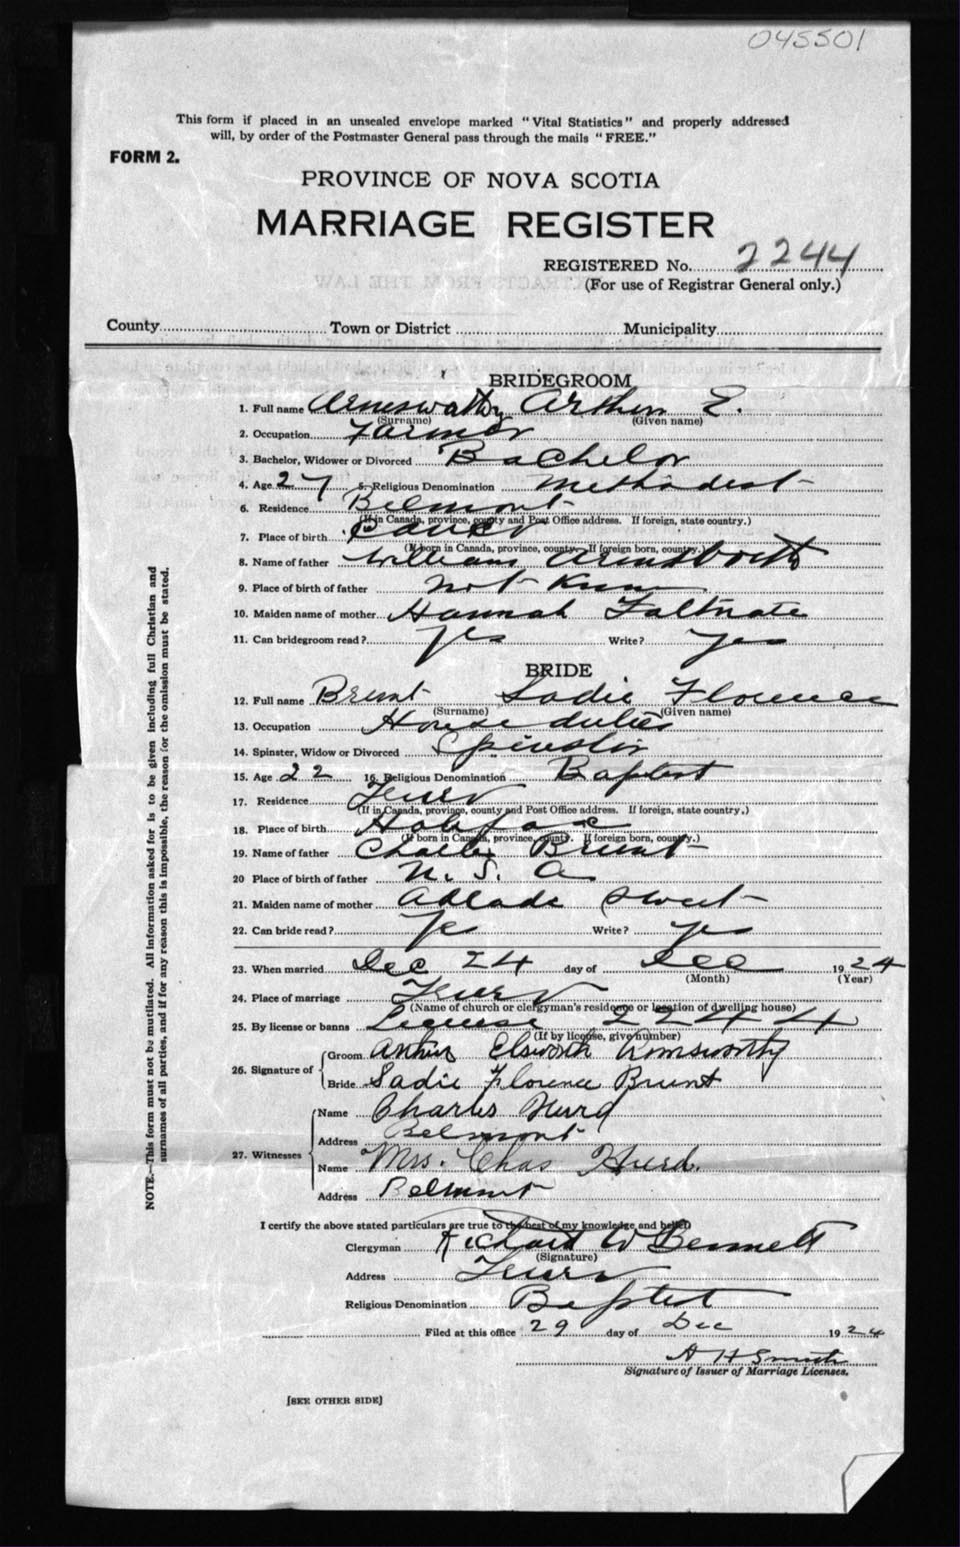 045501
This form if placed in an unsealed envelope marked "Vital Statistics" and properly addressed
will, by order of the Postmaster General pass through the mails "FREE."
FORM 2.
PROVINCE OF NOVA SCOTIA
MARRIAGE REGISTER
REGISTERED No. 2244
(For use of Registrar General only.)
County Town or District Municipality
BRIDEGROOM
1. Full name Armsworthy Arthur E.
(Surname) (Given name)
2. Occupation Farmer
3. Bachelor, Widower or Divorced Bachelor
4. Age 27 5. Religious Denomination Methodist
6. Residence Belmont
(If in Canada, province, county and Post Office address. If foreign, state country.)
7. Place of birth Canso
(If born in Canada, province, county. If foreign born, country.)
8. Name of father William
9. Place of birth of father not Know
10. Maiden name of mother Hannah
11. Can bridegroom read? yes Write? yes
BRIDE
12. Full name Brunt Sadie Florence
(Surname) (Given name)
13. Occupation House duties
14. Spinster, Widow or Divorced Spinster
15. Age 22 16. Religious Denomination Baptist
17. Residence Truro
(If in Canada, province, county and Post Office address. If foreign, state country.)
18. Place of birth Halifax
(If born in Canada, province, county. If foreign born, country.)
19. Name of father Brunt
20 Place of birth of father S. A
21. Maiden name of mother Adlade Sweet
22. Can bride read? yes Write? yes
23. When married Dec 24 day of Dec 1924
(Month) (Year)
24. Place of marriage Truro
(Name of church or clergyman's residence or location of dwelling house)
25. By license or banns 2244
(If by license, give number)
26. Signature of Groom Arthur Elsworth Armsworthy
Bride Sadie Florence Brunt
27. Witnesses Name Charles Hurd
Address Belmont
Name Mrs. Chas Hurd.
Address Belmont
I certify the above stated particulars are true to the best of my knowledge and belief.
Clergyman Richard W Bennett
(Signature)
Address Truro
Religious Denomination Baptist
Filed at this office 29 day of Dec 1924
A H Smith
Signature of Issuer of Marriage Licenses.
[SEE OTHER SIDE]
NOTE.—This form must not be mutilated. All information asked for is to be given including full Christian and
surnames of all parties, and if for any reason this is impossible, the reason for the omission must be stated.